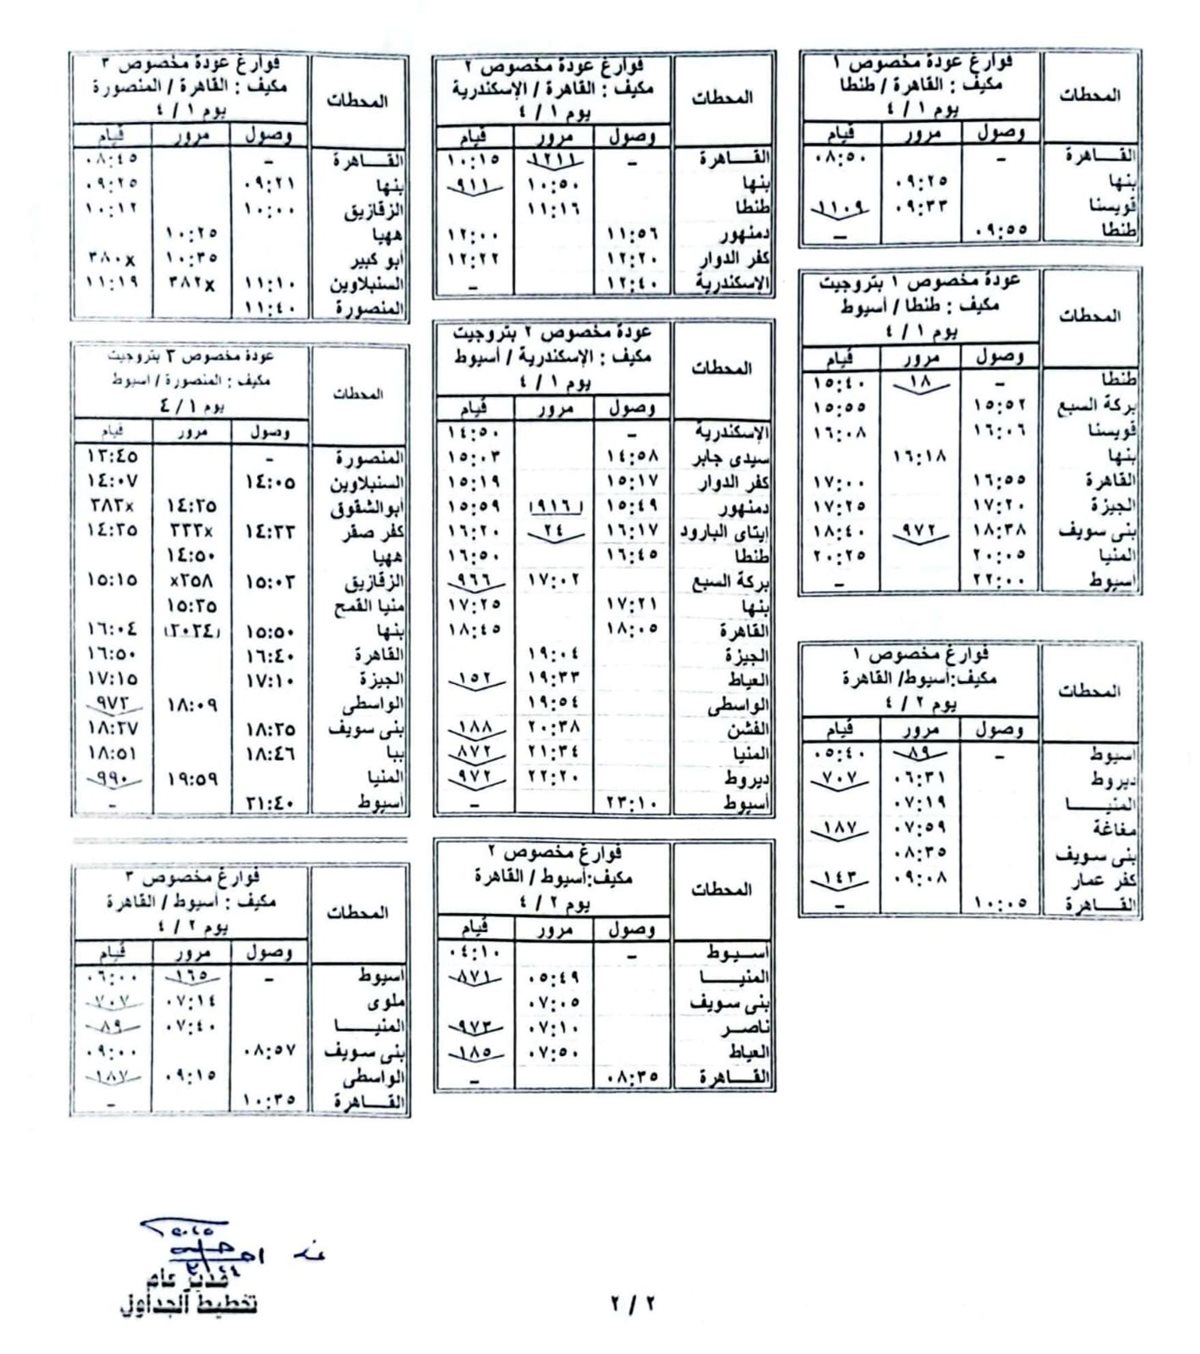 المحطات
فوارغ عودة مخصوص ١
مكيف : القاهرة / طنطا
يوم ١ / ٤
وصول مرور قيام
القــــاهرة – ٠٨:٥٠
بنها ٠٩:٢٥
قويسنا ٠٩:٣٣ ١١٠٩
طنطا ٠٩:٥٥ –
المحطات
عودة مخصوص ١ بتروجيت
مكيف : طنطا / أسيوط
يوم ١ / ٤
وصول مرور قيام
طنطا – ١٨ ١٥:٤٠
بركة السبع ١٥:٥٢ ١٥:٥٥
قويسنا ١٦:٠٦ ١٦:٠٨
بنها ١٦:١٨
القاهرة ١٦:٥٥ ١٧:٠٠
الجيزة ١٧:٢٠ ١٧:٢٥
بنى سويف ١٨:٣٨ ٩٧٢ ١٨:٤٠
المنيا ٢٠:٠٥ ٢٠:٢٥
اسيوط ٢٢:٠٠ –
المحطات
فوارغ مخصوص ١
مكيف:أسيوط/ القاهرة
يوم ٢ / ٤
وصول مرور قيام
اسيوط – ٨٩ ٠٥:٤٠
ديروط ٠٦:٣١ ٧٠٧
المنيـــــا ٠٧:١٩
مغاغة ٠٧:٥٩ ١٨٧
بنى سويف ٠٨:٣٥
كفر عمار ٠٩:٠٨ ١٤٣
القــــاهرة ١٠:٠٥ –
المحطات
فوارغ عودة مخصوص ٢
مكيف : القاهرة / الإسكندرية
يوم ١ / ٤
وصول مرور قيام
القــــاهرة – ١٢١١ ١٠:١٥
بنها ١٠:٥٠ ٩١١
طنطا ١١:١٦
دمنهور ١١:٥٦ ١٢:٠٠
كفر الدوار ١٢:٢٠ ١٢:٢٢
الإسكندرية ١٢:٤٠ –
المحطات
عودة مخصوص ٢ بتروجيت
مكيف : الإسكندرية / أسيوط
يوم ١ / ٤
وصول مرور قيام
الإسكندرية – ١٤:٥٠
سيدى جابر ١٤:٥٨ ١٥:٠٣
كفر الدوار ١٥:١٧ ١٥:١٩
دمنهور ١٥:٤٩ (٩١٦) ١٥:٥٩
ايتاى البارود ١٦:١٧ ٢٤ ١٦:٢٠
طنطا ١٦:٤٥ ١٦:٥٠
بركة السبع ١٧:٠٢ ٩٦٦
بنها ١٧:٢١ ١٧:٢٥
القاهرة ١٨:٠٥ ١٨:٤٥
الجيزة ١٩:٠٤
العياط ١٩:٣٣ ١٥٢
الواسطى ١٩:٥٤
الفشن ٢٠:٣٨ ١٨٨
المنيا ٢١:٣٤ ٨٧٢
ديروط ٢٢:٢٠ ٩٧٢
أسيوط ٢٣:١٠ –
المحطات
فوارغ مخصوص ٢
مكيف:أسيوط / القاهرة
يوم ٢ / ٤
وصول مرور قيام
اسـيوط – ٠٤:١٠
المنيـــــا ٠٥:٤٩ ٨٧١
بنى سويف ٠٧:٠٥
ناصـر ٠٧:١٠ ٩٧٣
العياط ٠٧:٥٠ ١٨٥
القــــاهرة ٠٨:٣٥ –
المحطات
فوارغ عودة مخصوص ٣
مكيف : القاهرة / المنصورة
يوم ١ / ٤
وصول مرور قيام
القــــاهرة – ٠٨:٤٥
بنها ٠٩:٢١ ٠٩:٢٥
الزقازيق ١٠:٠٠ ١٠:١٢
ههيا ١٠:٢٥
أبو كبير ١٠:٣٥ ٣٨٠x
السنبلاوين ١١:١٠ ٣٨٢x ١١:١٩
المنصورة ١١:٤٠
المحطات
عودة مخصوص ٣ بتروجيت
مكيف : المنصورة / اسيوط
يوم ١ / ٤
وصول مرور قيام
المنصورة – ١٣:٤٥
السنبلاوين ١٤:٠٥ ١٤:٠٧
أبوالشقوق ١٤:٢٥ ٣٨٣x
كفر صقر ١٤:٣٣ ٣٣٣x ١٤:٣٥
ههيا ١٤:٥٠
الزقازيق ١٥:٠٣ x٣٥٨ ١٥:١٥
منيا القمح ١٥:٣٥
بنها ١٥:٥٠ (٣٠٣٤) ١٦:٠٤
القاهرة ١٦:٤٠ ١٦:٥٠
الجيزة ١٧:١٠ ١٧:١٥
الواسطى ١٨:٠٩ ٩٧٣
بنى سويف ١٨:٣٥ ١٨:٣٧
ببا ١٨:٤٦ ١٨:٥١
المنيا ١٩:٥٩ ٩٩٠
أسيوط ٢١:٤٠ –
المحطات
فوارغ مخصوص ٣
مكيف : أسيوط / القاهرة
يوم ٢ / ٤
وصول مرور قيام
اسيوط – ١٦٥ ٠٦:٠٠
ملوى ٠٧:١٤ ٧٠٧
المنيـــــا ٠٧:٤٠ ٨٩
بنى سويف ٠٨:٥٧ ٠٩:٠٠
الواسطى ٠٩:١٥ ١٨٧
القــــاهرة ١٠:٣٥ –
مدير عام
تخطيط الجداول
٢ / ٢